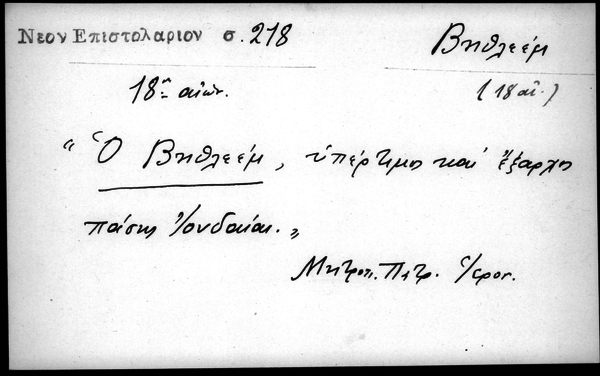 Νεον Επιστολαριον σ. 218
Βηθλεέμ
18ος αἰών.
(18 αἰ.)
"Ὁ Βηθλεέμ, ὑπέρτιμος καὶ ἔξαρχος
πάσης Ἰουδαίας."
Μητροπ. Πετρ. Ἱερος.